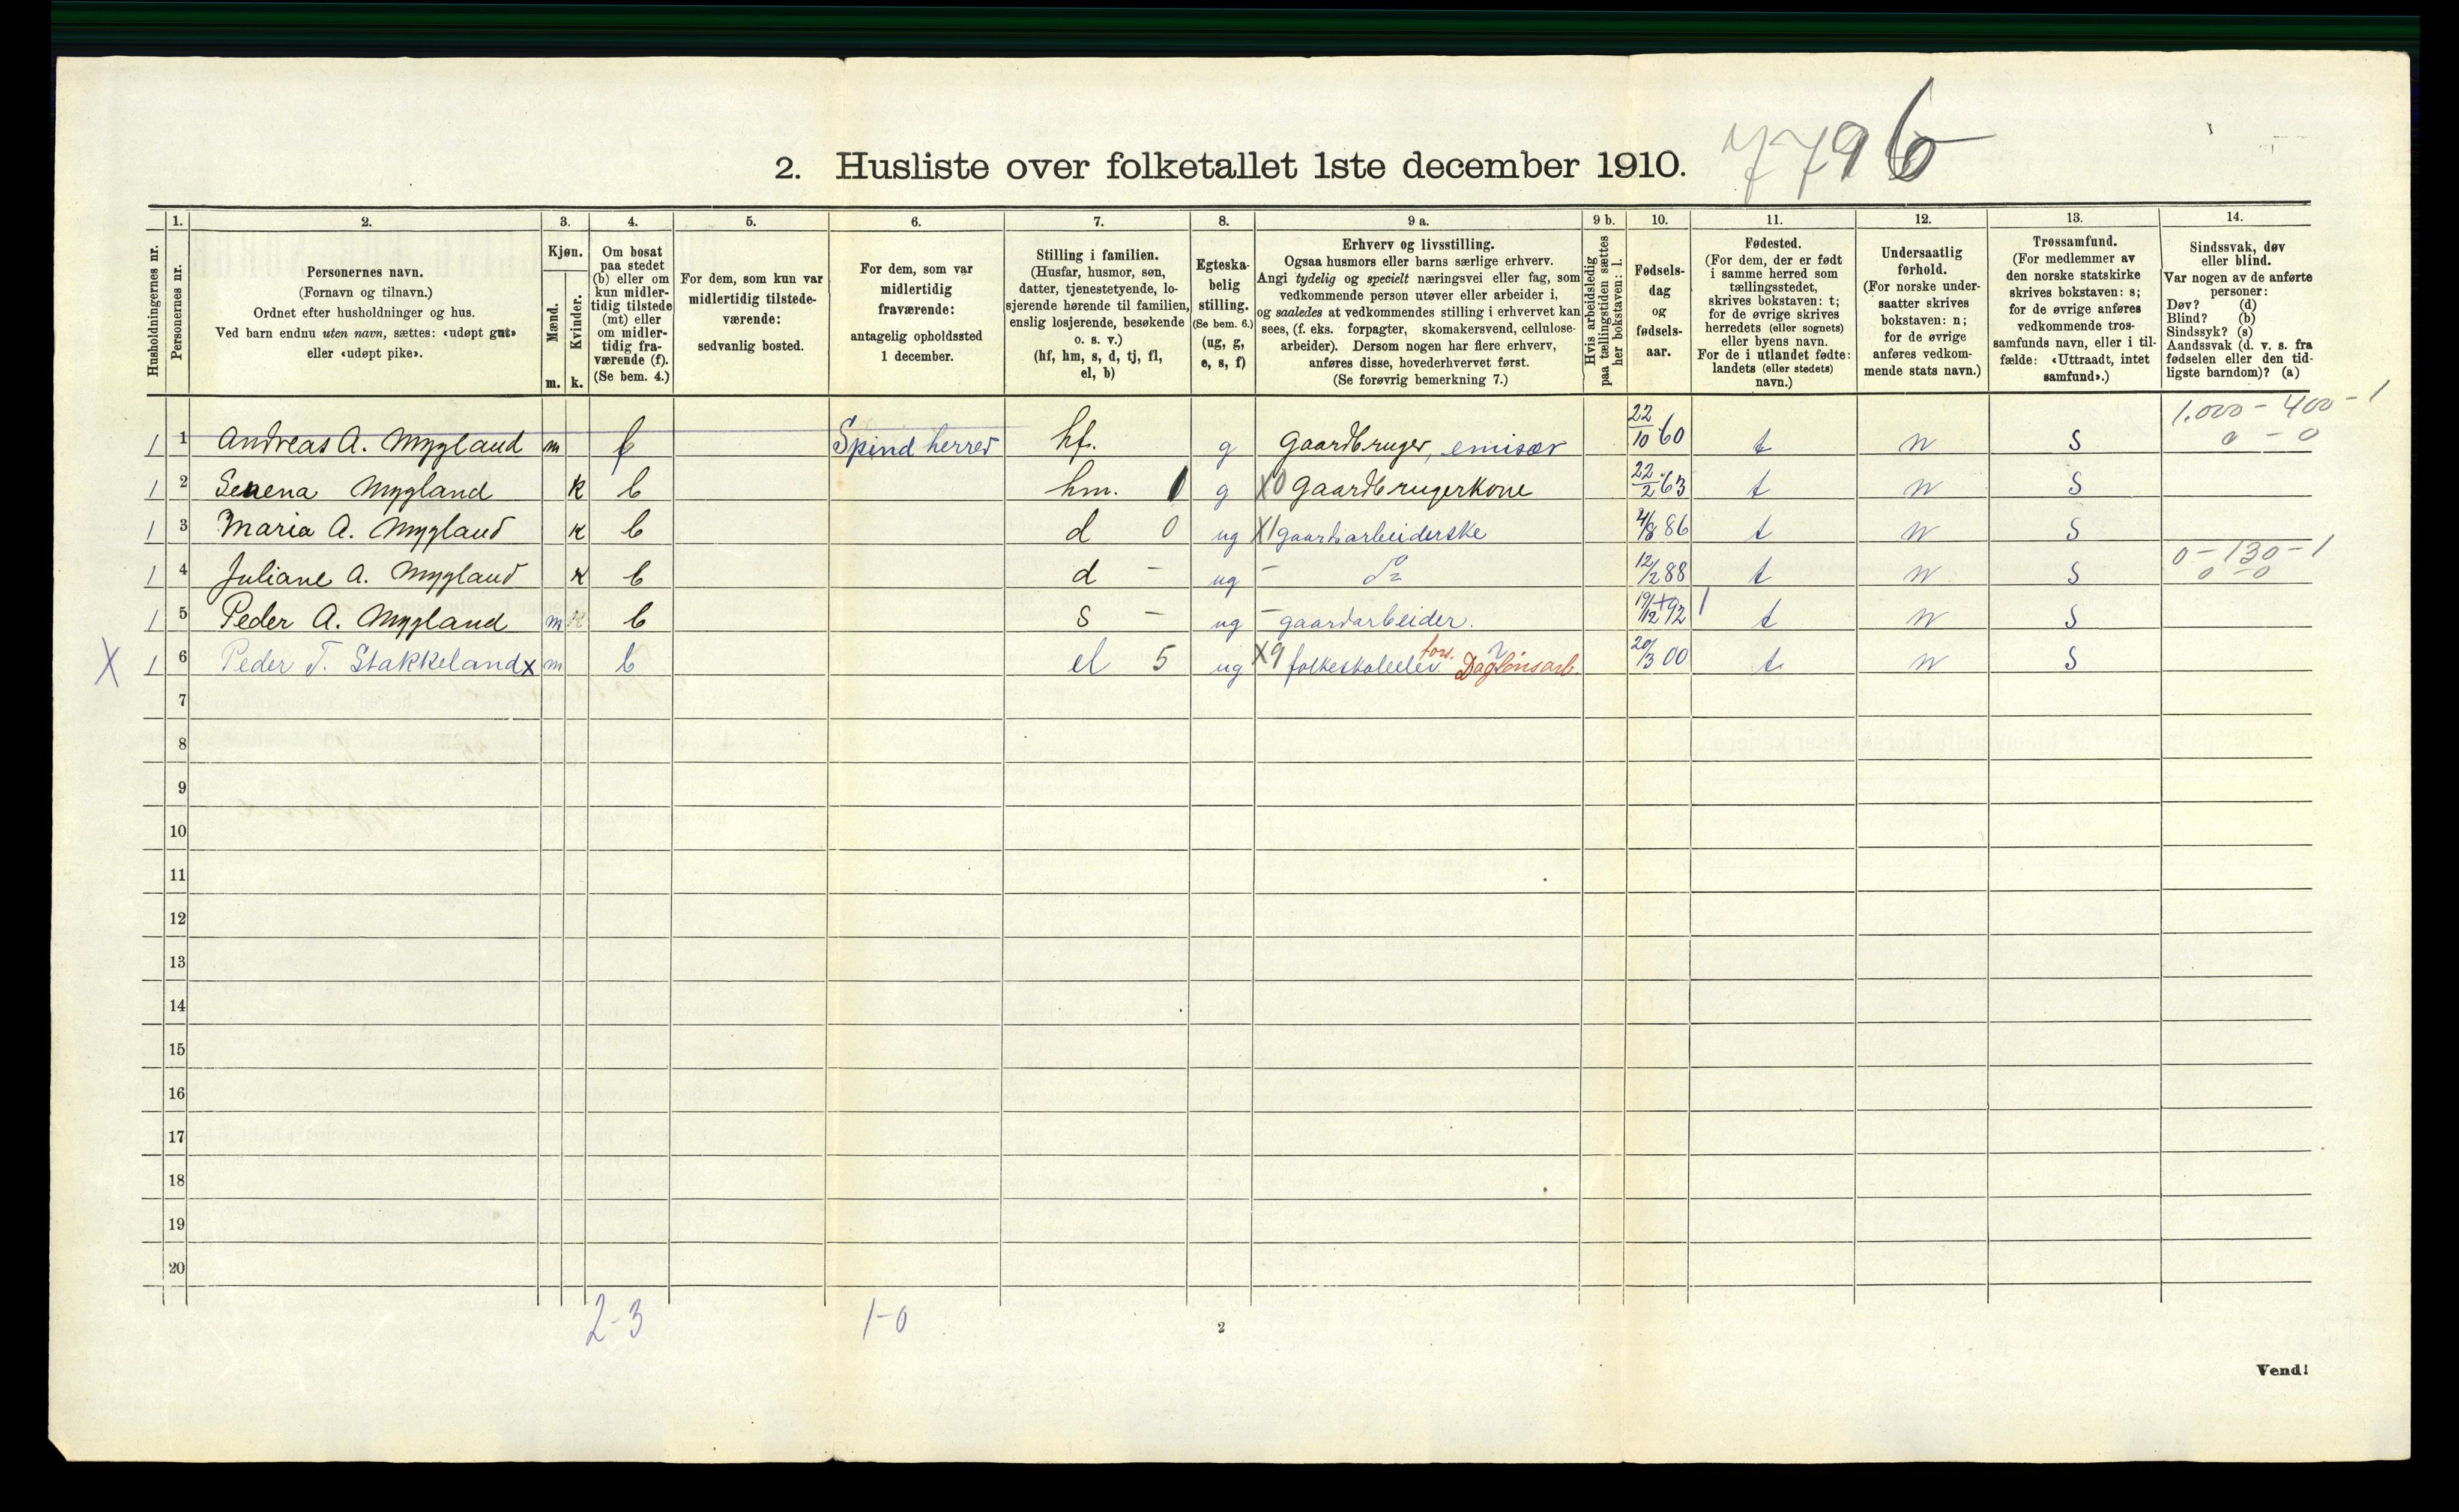 2. Husliste over folketallet 1ste december 1910.
7796
Husholdningernes nr.
1.
Personernes nr.
2.
Personernes navn.
(Fornavn og tilnavn.)
Ordnet efter husholdninger og hus.
Ved barn endnu uten navn, sættes: «udøpt gut»
eller «udøpt pike».
3.
Kjøn.
Mænd.
Kvinder.
m. k.
4.
Om bosat
paa stedet
(b) eller om
kun midler-
tidig tilstede
(mt) eller
om midler-
tidig fra-
værende (f).
(Se bem. 4.)
5.
For dem, som kun var
midlertidig tilstede-
værende:
sedvanlig bosted.
6.
For dem, som var
midlertidig
fraværende:
antagelig opholdssted
1 december.
7.
Stilling i familien.
(Husfar, husmor, søn,
datter, tjenestetyende, lo-
sjerende hørende til familien,
enslig losjerende, besøkende
o. s. v.)
(hf, hm, s, d, tj, fl,
el, b)
8.
Egteska-
belig
stilling.
(Se bem. 6.)
(ug, g,
e, s, f)
9 a.
Erhverv og livsstilling.
Ogsaa husmors eller barns særlige erhverv.
Angi tydelig og specielt næringsvei eller fag, som
vedkommende person utøver eller arbeider i,
og saaledes at vedkommendes stilling i erhvervet kan
sees, (f. eks. forpagter, skomakersvend, cellulose-
arbeider). Dersom nogen har flere erhverv,
anføres disse, hovederhvervet først.
(Se forøvrig bemerkning 7.)
9 b.
Hvis arbeidsledig
paa tællingstiden sættes
her bokstaven: l.
10.
Fødsels-
dag
og
fødsels-
aar.
11.
Fødested.
(For dem, der er født
i samme herred som
tællingsstedet,
skrives bokstaven: t;
for de øvrige skrives
herredets (eller sognets)
eller byens navn.
For de i utlandet fødte:
landets (eller stedets)
navn.)
12.
Undersaatlig
forhold.
(For norske under-
saatter skrives
bokstaven: n;
for de øvrige
anføres vedkom-
mende stats navn.)
13.
Trossamfund.
(For medlemmer av
den norske statskirke
skrives bokstaven: s;
for de øvrige anføres
vedkommende tros-
samfunds navn, eller i til-
fælde: «Uttraadt, intet
samfund».)
14.
Sindssvak, døv
eller blind.
Var nogen av de anførte
personer:
Døv? (d)
Blind? (b)
Sindssyk? (s)
Aandssvak (d. v. s. fra
fødselen eller den tid-
ligste barndom)? (a)
1.000 - 400 - 1
0 - 0
1 1 Andreas A. Mygland m f Spind herred hf. g Gaardbruger, emisær 22/10 60 t n S
1 2 Serena Mygland k b hm. 1 g X0 Gaardbrugerkone 22/2 63 t n S
1 3 Maria A. Mygland k b d 0 ug X1 gaardsarbeiderske 4/8 86 t n S
0 - 130 - 1
0 - 0
1 4 Juliane A. Mygland k b d - ug - do 12/2 88 t n S
1 5 Peder A. Mygland m k b s - ug - gaardarbeider. 19/12 92 t n S
X 1 6 Peder T. Stakkeland x m b el 5 ug X9 folkeskoleelev fors. Daglønsarb. 20/3 00 t n S
7
8
9
10
11
12
13
14
15
16
17
18
19
20
2-3 1-0
2
Vend!